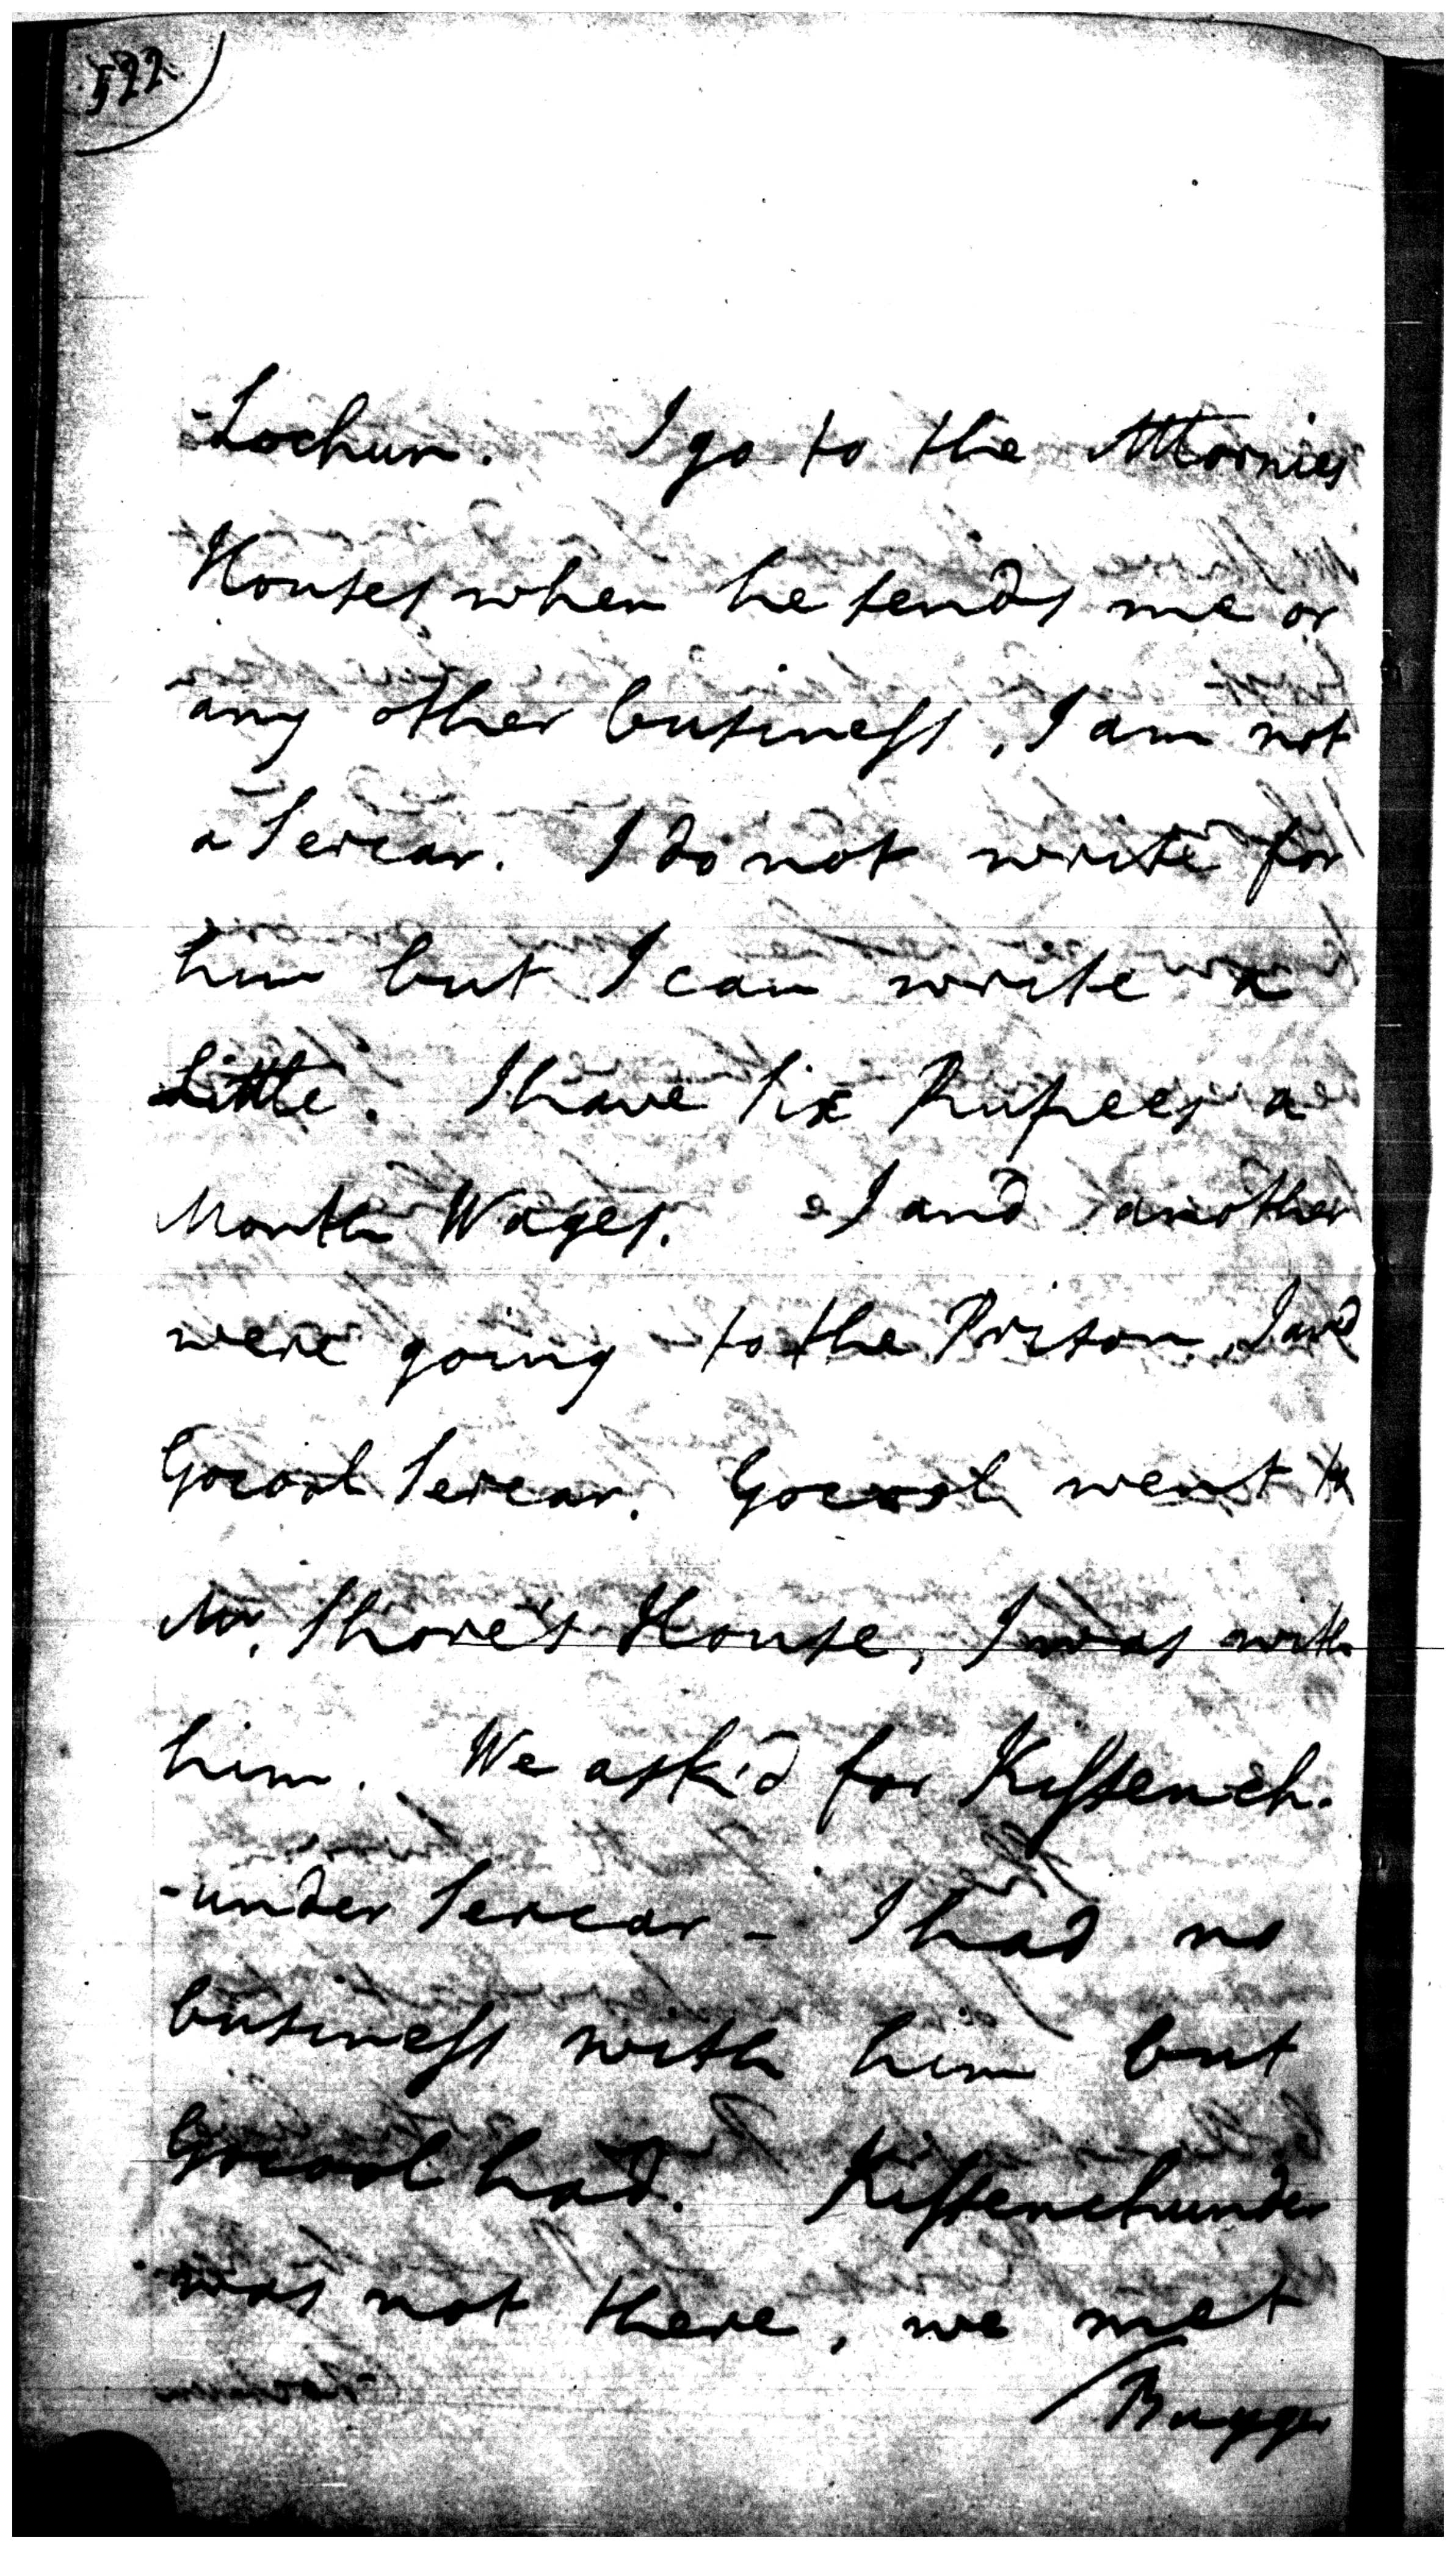 522
-Lochun. I go to the Attornies
Houses when he sends me or
any other business, I am not
a Sercar. I do not write for
him but I can write a
Little. I have Six Rupees a
Month Wages. I and another
were going to the Prison, I and
Gocool Sercar. Gocool went to
Mr. Shore's House, I was with
him. We ask'd for Kissench-
-under Sercar - I had no
business with him but
Gocool had. Kissenchunder
was not there, we met